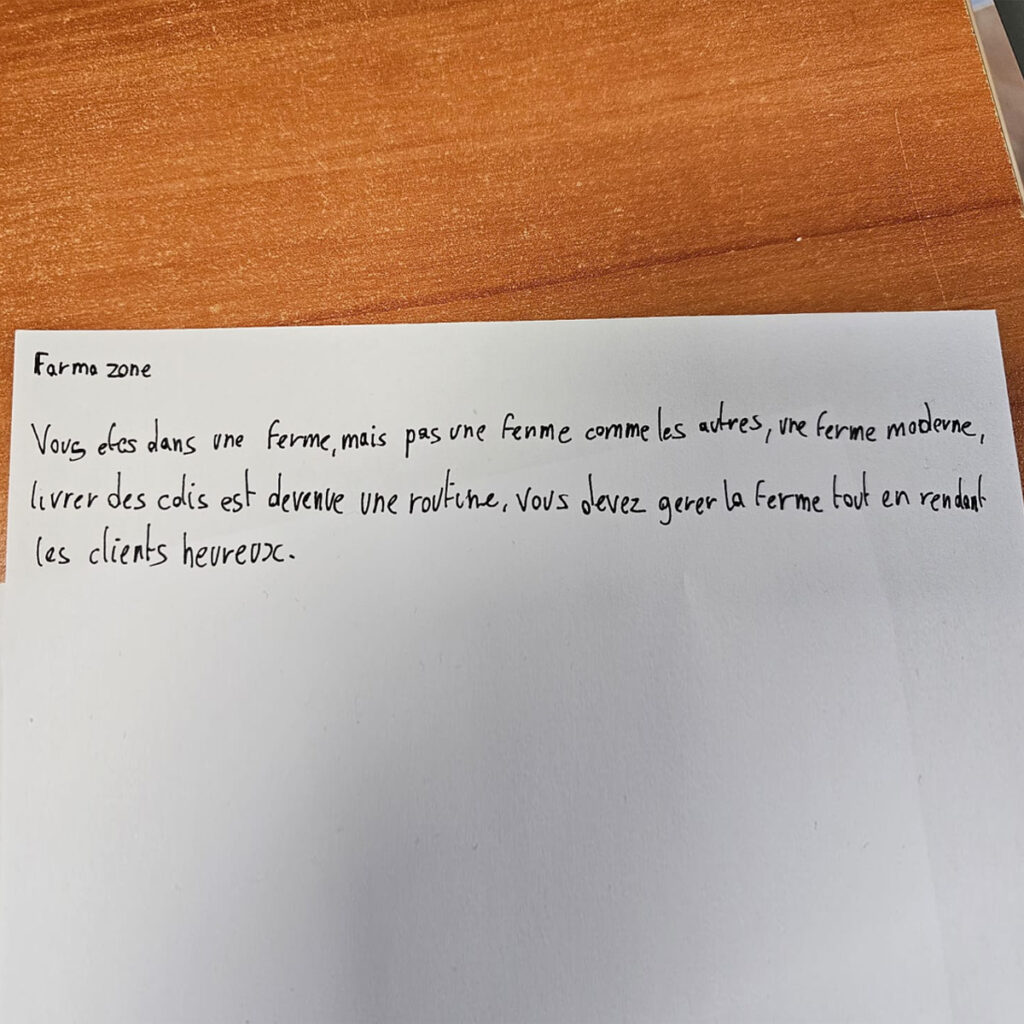 Farma zone
Vous etes dans une ferme, mais pas une fenme comme les autres, une ferme moderne,
livrer des colis est devenue une routine, vous devez gerer la ferme tout en rendant
les clients heureux.